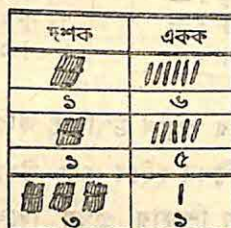 দশক একক
১ ৬
১ ৫
৩ ১